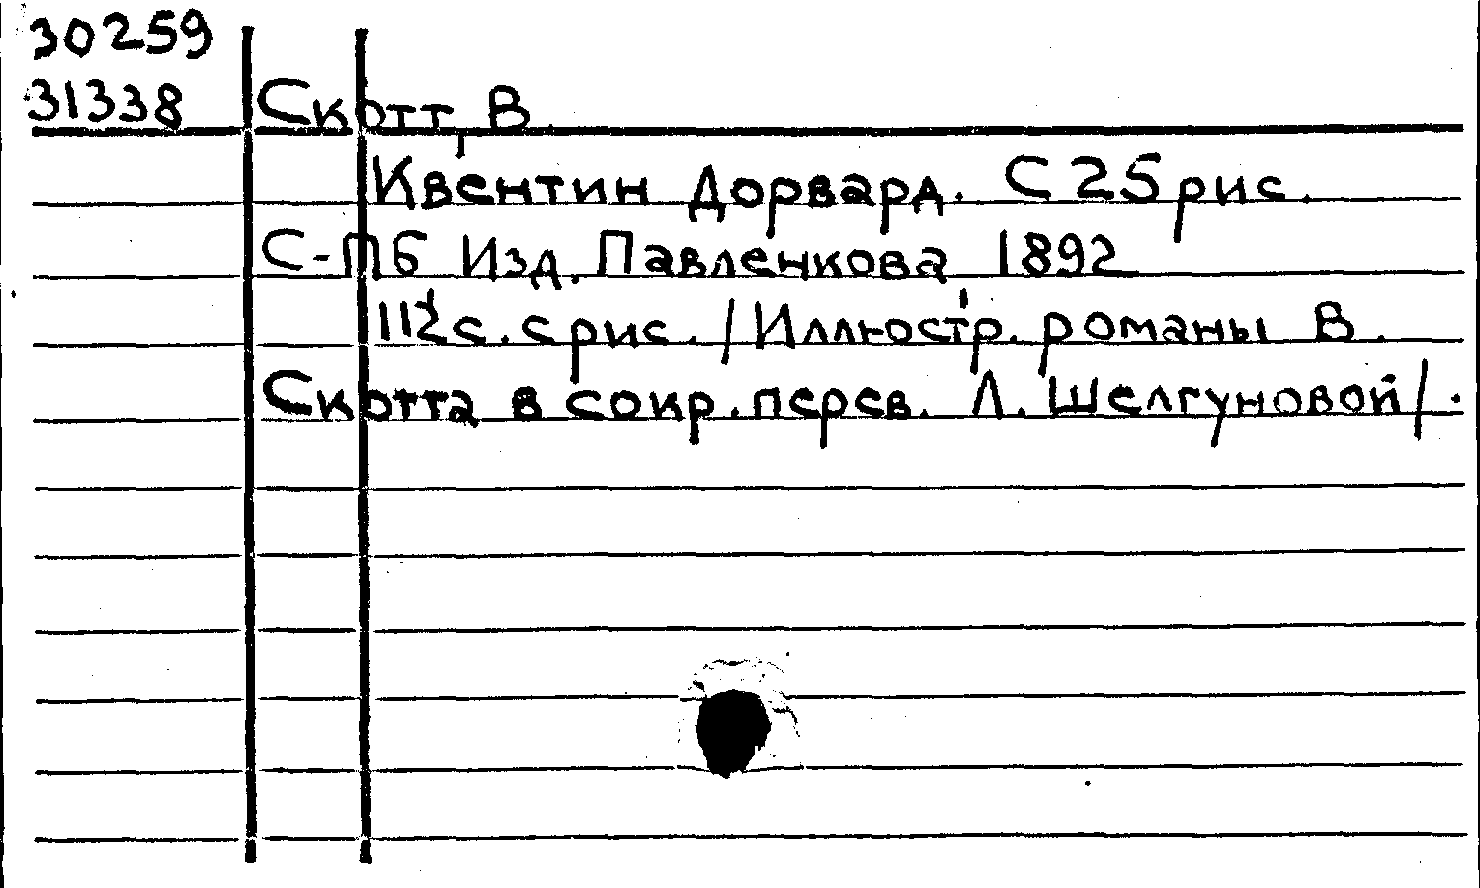 30259
31338 Скотт, В.
Квентин Дорвард. С 25 рис.
С-ПБ Изд. Павленкова 1892
112 с. с рис. /Иллюстр. романы В.
Скотта в сокр. перев. Л. Шелгуновой/.